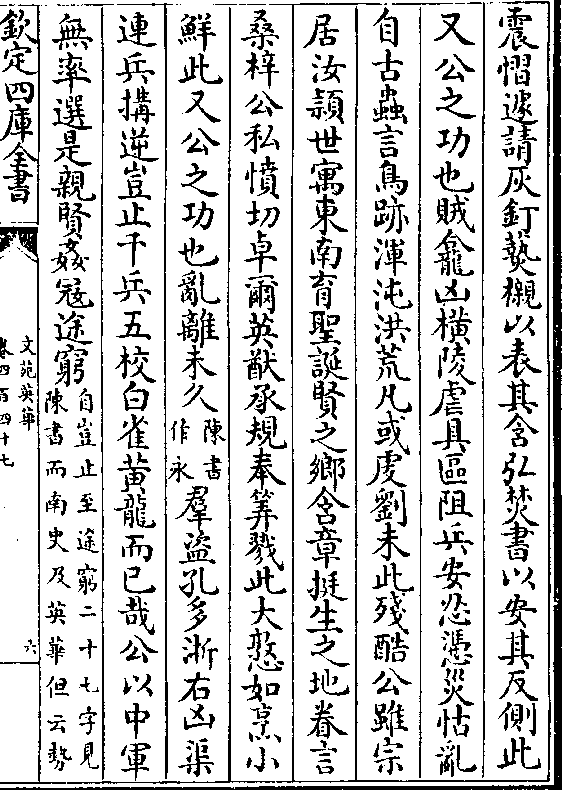 震慴遽請灰釘爇櫬以表其含弘焚書以安其反側此
又公之功也賊龕凶橫陵虐具區阻兵安忍憑災怙亂
自古蟲言鳥跡渾沌洪荒凡或虔劉未此殘酷公雖宗
居汝潁世寓東南育聖誕賢之鄉含章挺生之地眷言
桑梓公私憤切卓爾英猷承規奉筭戮此大憝如烹小
鮮此又公之功也亂離未久陳書作永羣盜孔多浙右凶渠
連兵搆逆豈止千兵五校白雀黄龍而已哉公以中軍
無率選是親賢姦冦途窮自豈止至途窮二十七字見陳書而南史及英華但云勢
欽定四庫全書
文苑英華
卷四百四十七
六